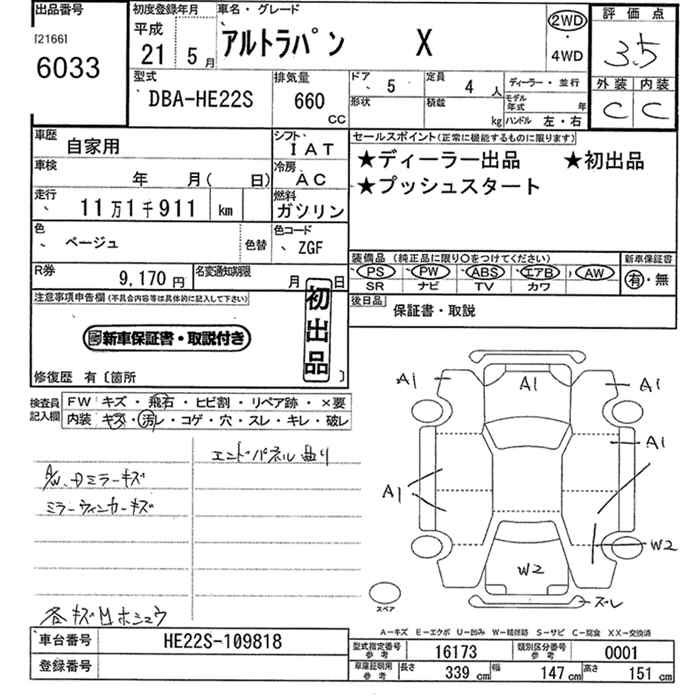 出品番号
[2166]
6033
初度登録年月
平成
21 5月
車名・グレード
アルトラパン X
2WD
・
4WD
評価点
3.5
外装 内装
C C
型式
DBA-HE22S
排気量
660
CC
ドア
、 5
定員
4 人
ディーラー・並行
形状
積載
kg
モデル
年式 年
ハンドル 左・右
車歴
自家用
シフト
IAT
セールスポイント(正常に機能するものに限ります)
★ディーラー出品 ★初出品
★プッシュスタート
車検
年 月( 日)
冷房
AC
走行
、 11万1千911 km
燃料
ガソリン
色
、 ベージュ
色替
色コード
、 ZGF
装備品 (純正品に限り○をつけてください)
PS PW ABS エアB AW
SR ナビ TV カワ
新車保証書
有・無
R券
9,170円
名変通知期限
月 日
後日品
保証書・取説
注意事項申告欄(不具合内容等は具体的に記入して下さい)
初出品
新車保証書・取説付き
修復歴 有〔箇所 〕
検査員
記入欄
FW キズ・飛石・ヒビ割・リペア跡・×要
内装 キズ・汚レ・コゲ・穴・スレ・キレ・破レ
エンドパネル曲り
A/W、Dミラーキズ
ミラーウィンカーキズ
各キズ凹ホシュウ
A1
A1
A1
A1
A1
W2
W2
ズレ
スペア
A-キズ E-エクボ U-凹み W-補修跡 S-サビ C-腐食 XX-交換済
車台番号
HE22S-109818
登録番号
型式指定番号
参考
16173
類別区分番号
参考
0001
車庫証明用
参考
長さ
339 cm
幅
147 cm
高さ
151 cm